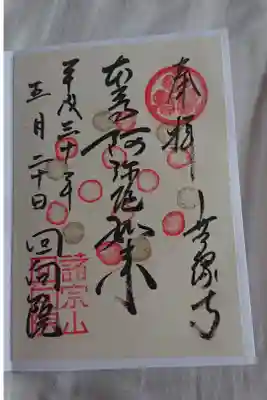 奉拝 無縁寺
本尊阿弥陀如来
平成三十年
五月二十日 回向院
諸宗山